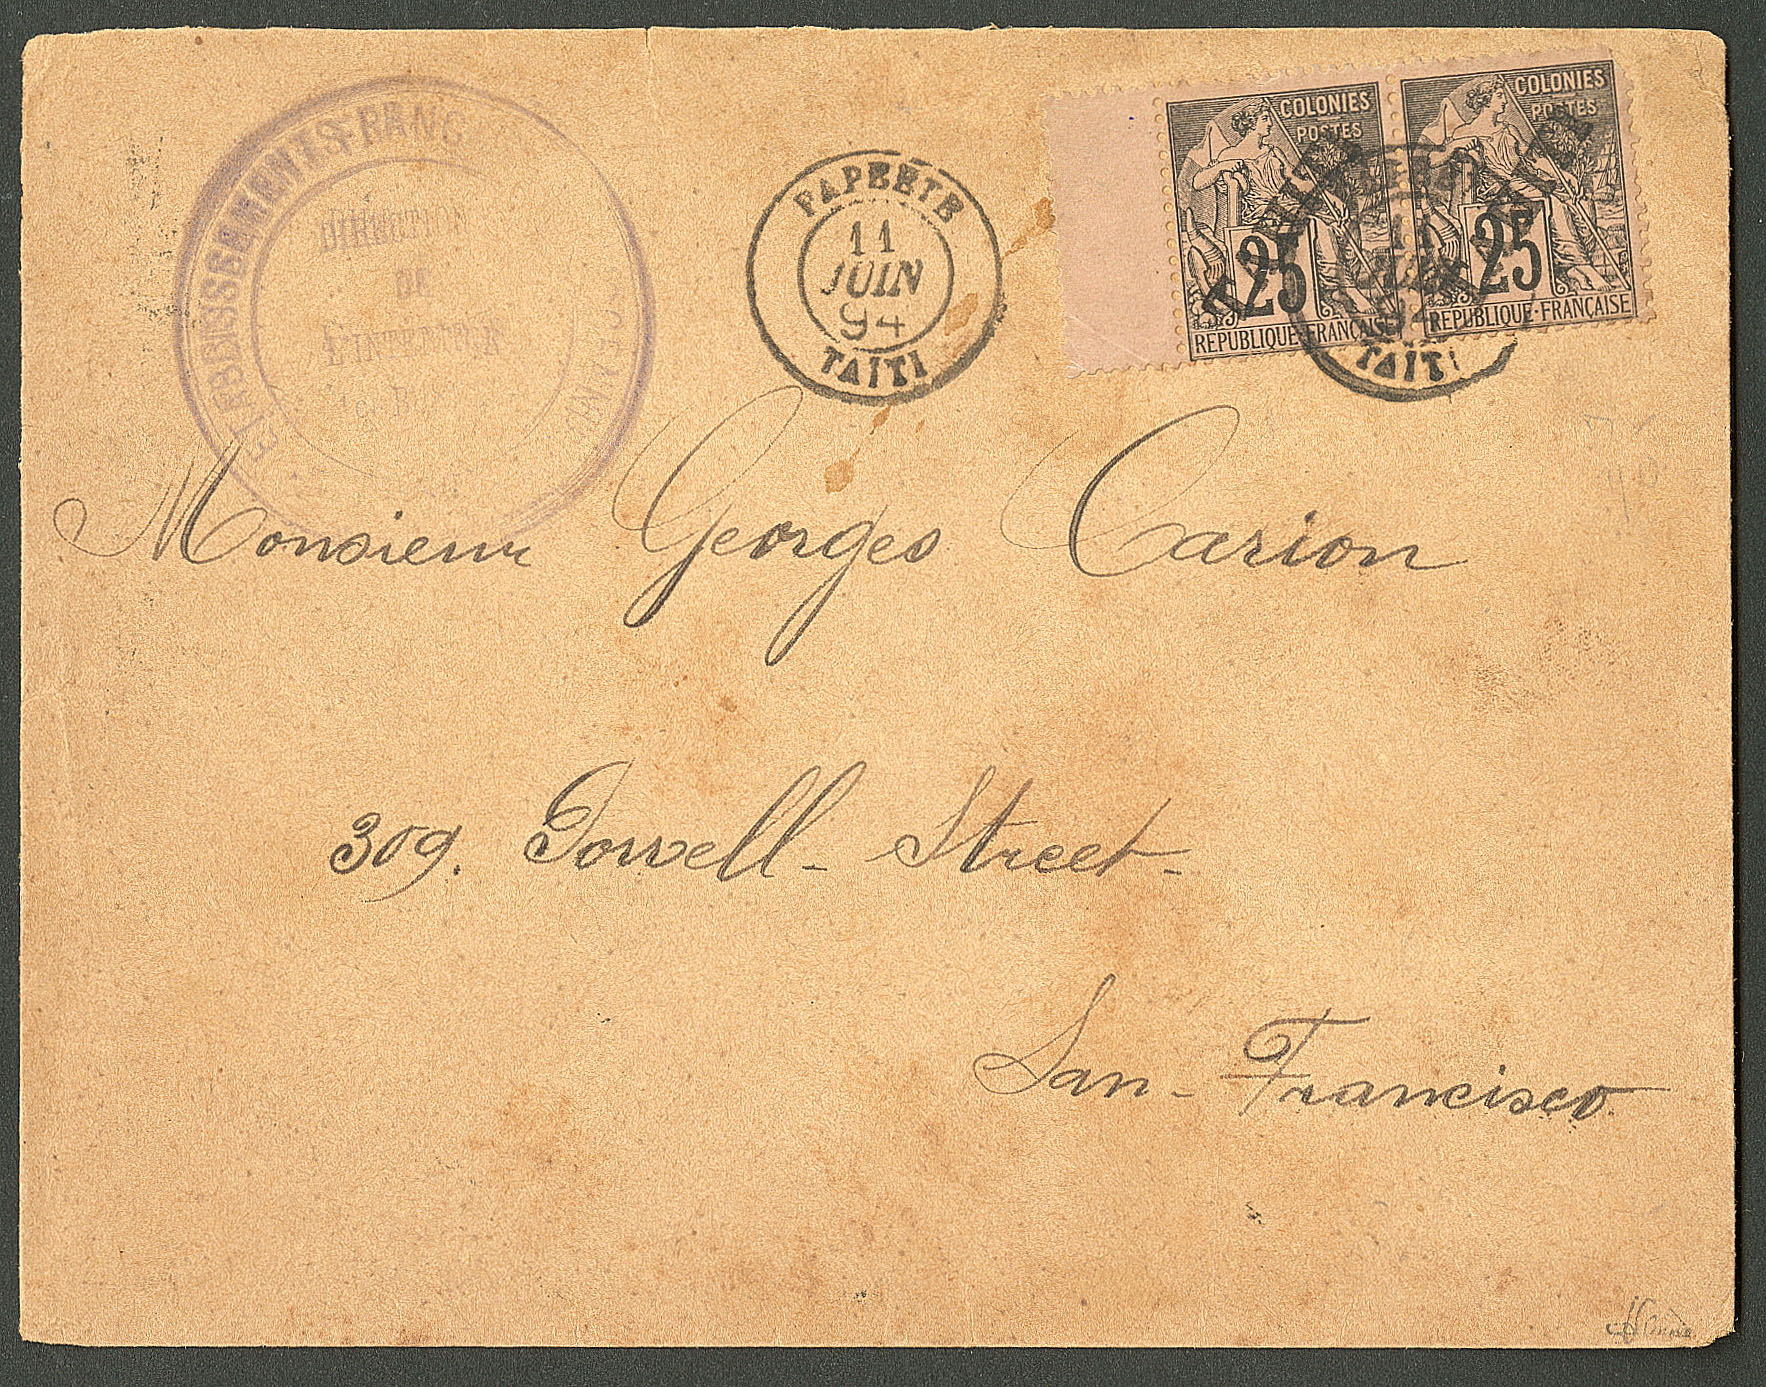 ETABLISSEMENTS FRANC
DIRECTION
DE
L'INTERIEUR
PAPEETE
11
JUIN
94
TAITI
COLONIES
POSTES
25
REPUBLIQUE·FRANÇAISE
COLONIES
POSTES
25
REPUBLIQUE·FRANÇAISE
11
TAITI
Monsieur Georges Carion
309. Powell - Street -
San - Francisco